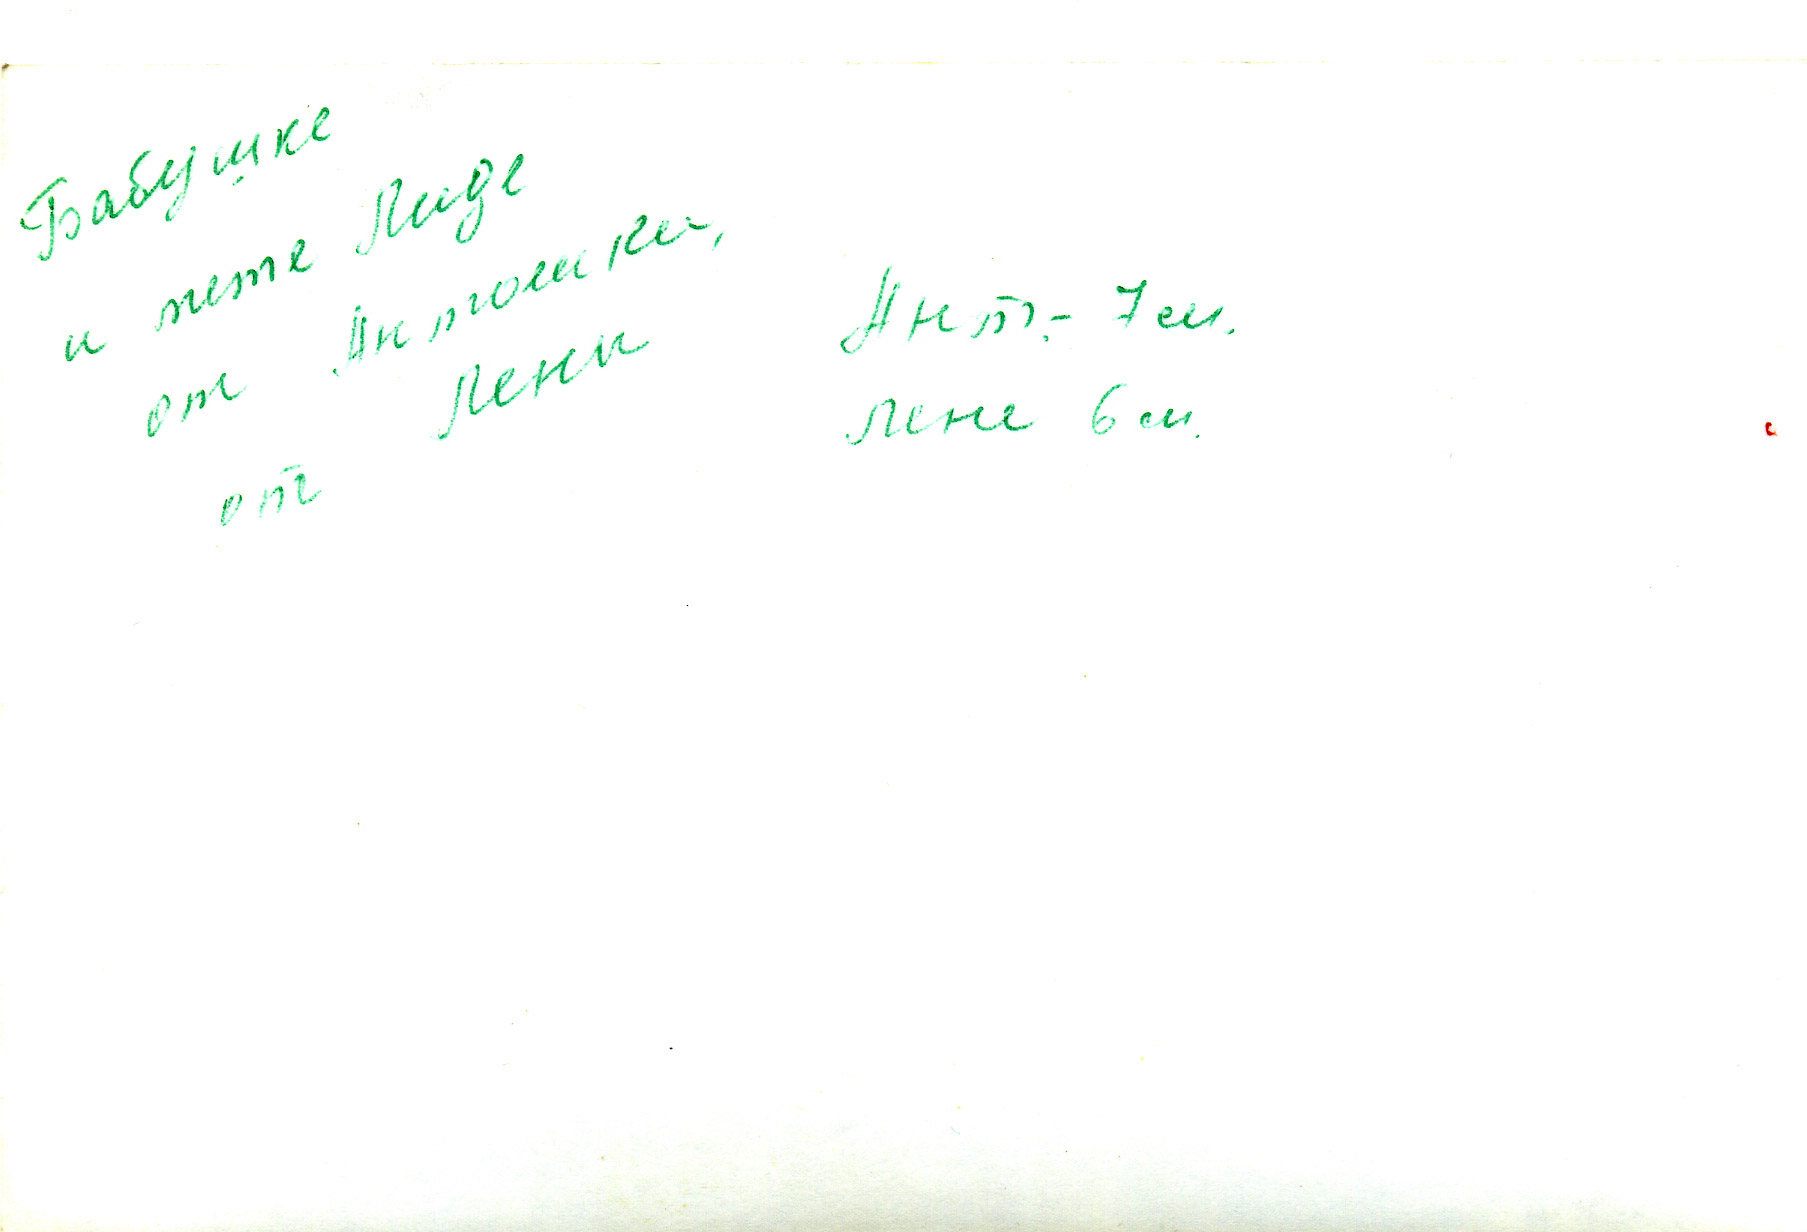 Бабушке
и тете Лиде
от Антошки,
от Лени
Ант. - 7 м.
Лене 6 м.